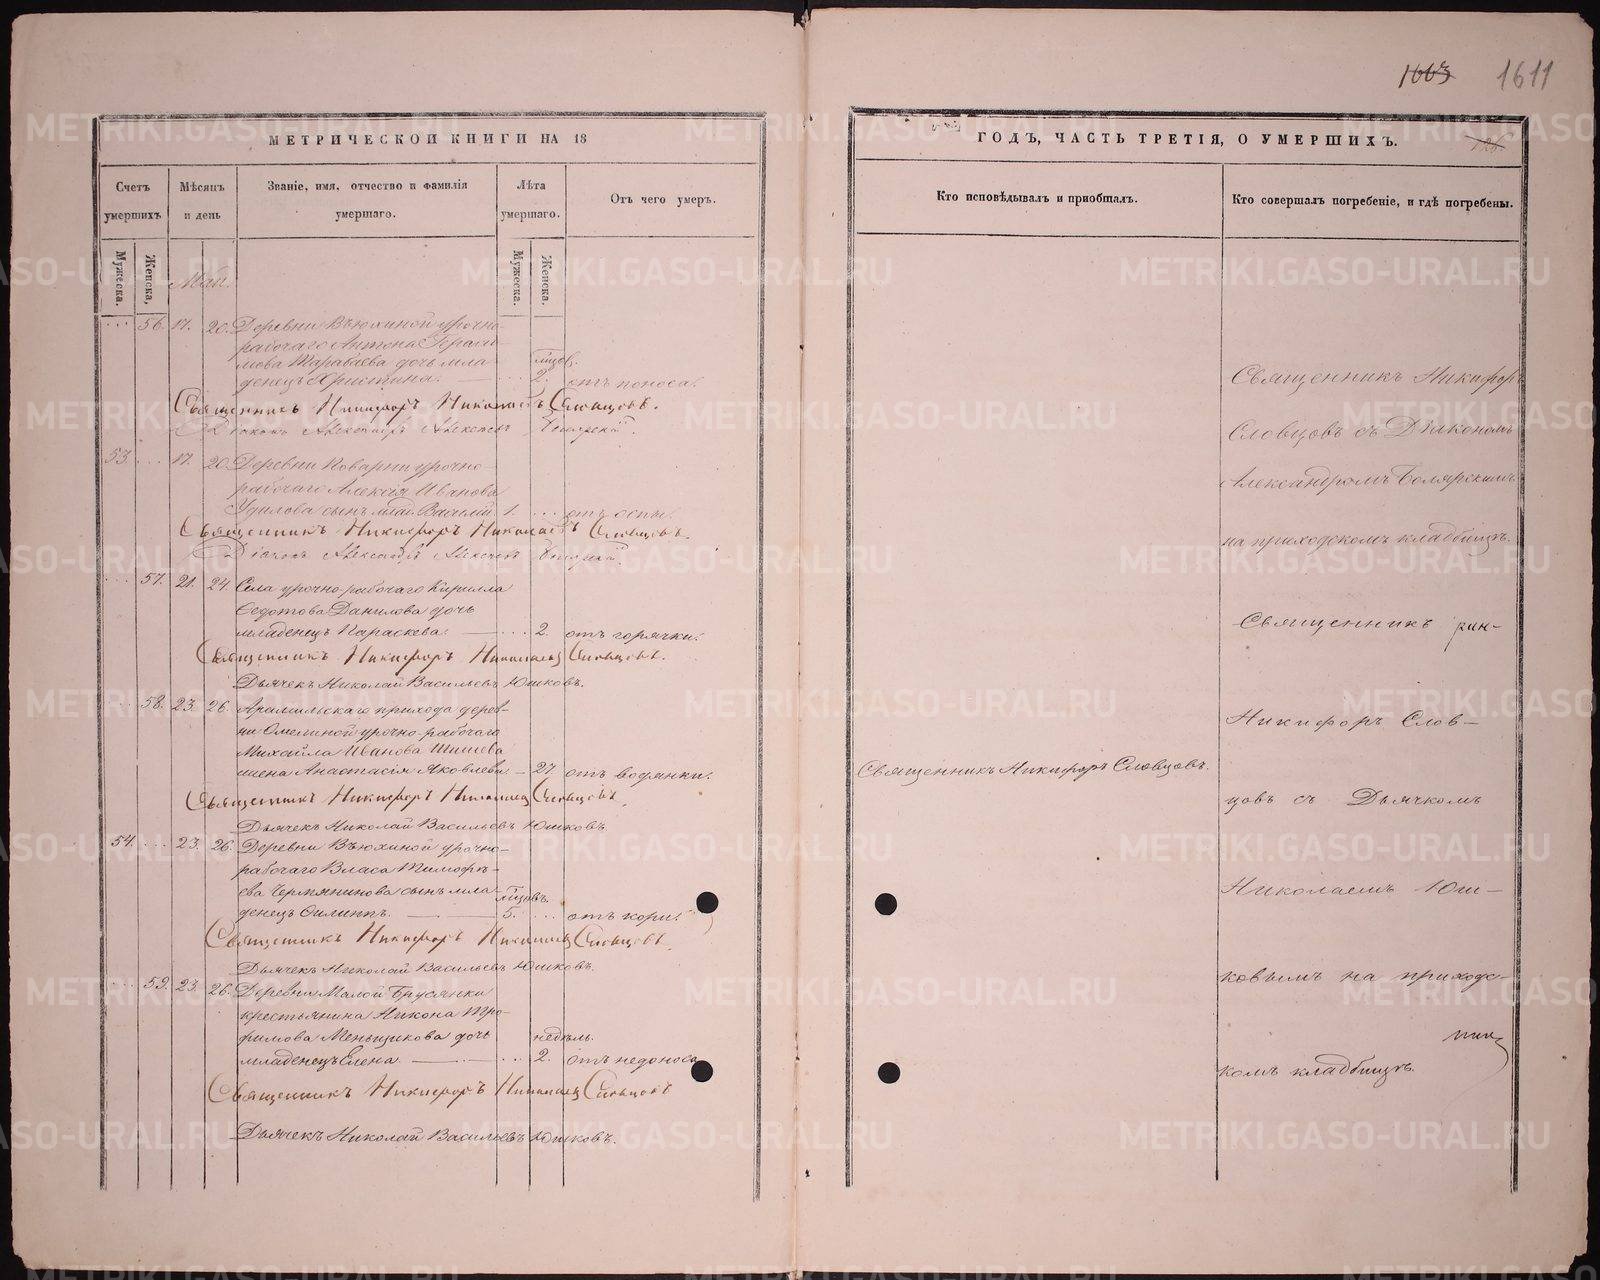 1663 1611
МЕТРИЧЕСКОЙ КНИГИ НА 18
Счетъ умершихъ
Мѣсяцъ и день
Званіе, имя, отчество и фамилія умершаго.
Лѣта умершаго.
Отъ чего умеръ.
Мужеска. Женска,
Мужеска. Женска.
Май.
... 56. 17. 20. Деревни Вьюхиной урочно-
рабочаго Антона Гераси-
мова Тарабаева дочь мла- мѣсяц.
денецъ Христина. ... 2. отъ поноса.
Священникъ Никифоръ Николаевъ Словцовъ.
Діаконъ Александръ Алексѣевъ Боярскій
53. ... 17. 20. Деревни Поварни урочно-
рабочаго Алексія Иванова
сынъ млад. Василій 1. ... отъ оспы.
Священникъ Никифоръ Николаевъ Словцовъ.
Діаконъ Александръ Алексѣевъ Боярскій
... 57. 21. 24. Села урочно-рабочаго Кирилла
Ѳедотова Данилова дочь
младенецъ Параскева. ... 2. отъ горячки.
Священникъ Никифоръ Николаевъ Словцовъ.
Дьячекъ Николай Васильевъ Юшковъ.
... 58. 23. 26. Арамильскаго прихода дерев-
ни урочно-рабочаго
Михайла Иванова
жена Анастасія Яковлева — 27. отъ водянки.
Священникъ Никифоръ Николаевъ Словцовъ.
Дьячекъ Николай Васильевъ Юшковъ
54. ... 23. 26. Деревни Вьюхиной урочно-
рабочаго Власа Тимофѣ-
ева сынъ мла- мѣсяцовъ.
денецъ Филиппъ. 5. ... отъ кори.
Священникъ Никифоръ Николаевъ Словцовъ.
Дьячекъ Николай Васильевъ Юшковъ.
... 59. 23. 26. Деревни Малой Брусянки
крестьянина Никона Тро-
фимова Меньщикова дочь недѣль.
младенецъ Елена. ... 2. отъ недоноса
Священникъ Никифоръ Николаевъ Словцовъ
Дьячекъ Николай Васильевъ Юшковъ.
ГОДЪ, ЧАСТЬ ТРЕТІЯ, О УМЕРШИХЪ.
Кто исповѣдывалъ и пріобщалъ.
Кто совершалъ погребеніе, и гдѣ погребены.
Священникъ Никифоръ
Словцовъ съ Діакономъ
Александромъ Боярскимъ
на приходскомъ кладбищѣ.
Священникъ
Никифоръ Слов-
Священникъ Никифоръ Словцовъ.
цовъ съ Дьячкомъ
Николаемъ Юш-
ковымъ на приходс-
комъ кладбищѣ.
METRIKI.GASO-URAL.RU